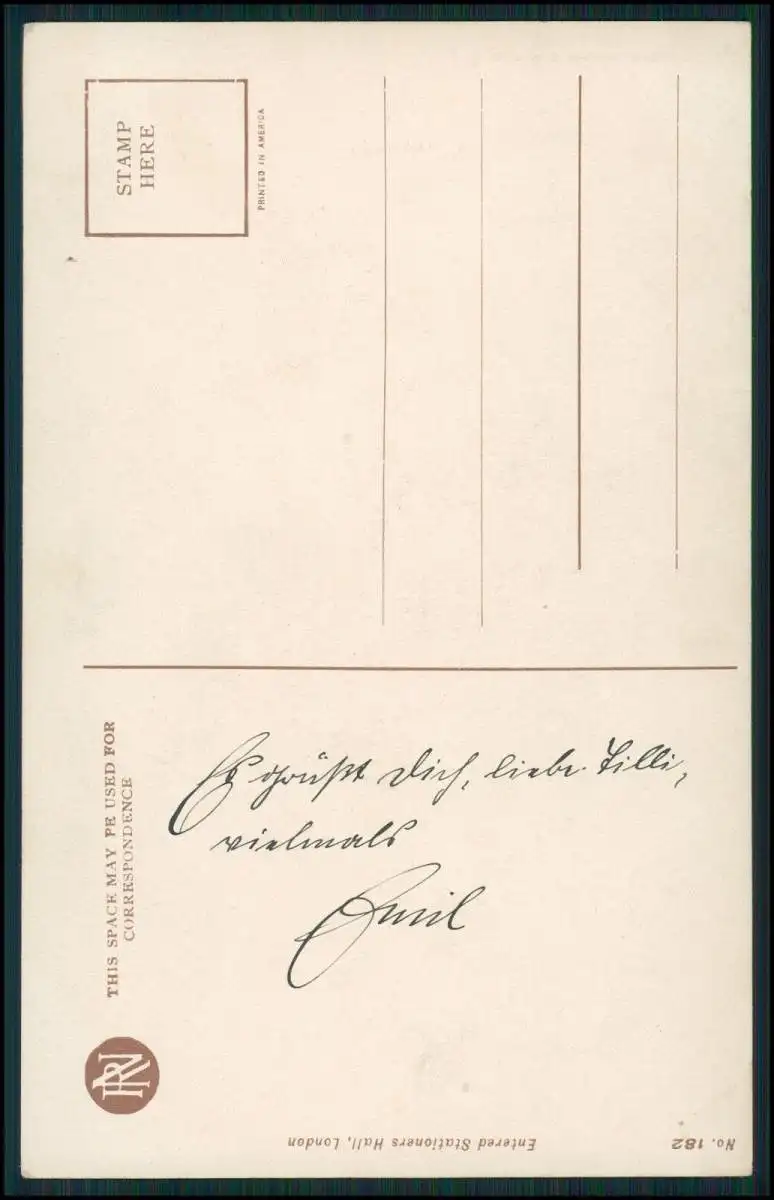 STAMP
HERE
PRINTED IN AMERICA
THIS SPACE MAY PE USED FOR
CORRESPONDENCE
Es grüßt Dich, liebe Tilli,
vielmals
Emil
RN
Entered Stationers Hall, London
No. 182